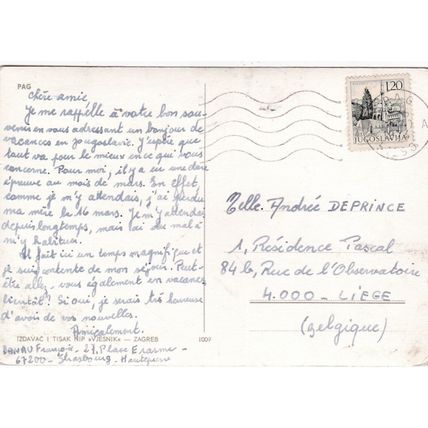 PAG
Chère amie
Je me rappelle à votre bon sou-
venir en vous adressant un bonjour de
vacances en Yougoslavie. J'espère que
tout va pour le mieux en ce qui vous
concerne. Pour moi, il y a eu une dure
épreuve au mois de mars. En effet,
comme je m'y attendais, j'ai perdu
ma mère le 16 mars. Je m'y attendais
depuis longtemps, mais j'ai du mal à
m'y habituer.
Il fait ici un temps magnifique et
je suis contente de mon séjour. Peut-
être allez-vous également en vacances
bientôt! Si oui, je serais très heureuse
d'avoir de vos nouvelles.
Amicalement.
IZDAVAČ I TISAK NIP »VJESNIK« — ZAGREB
1009
Françoise - 27, Place Erasme -
67200 - Strasbourg - Hautepierre
1.20
JUGOSLAVIJA
PAG
Melle. Andrée DEPRINCE
1, Résidence Pascal
84 b, Rue de l'Observatoire
4.000 - LIEGE
(Belgique)